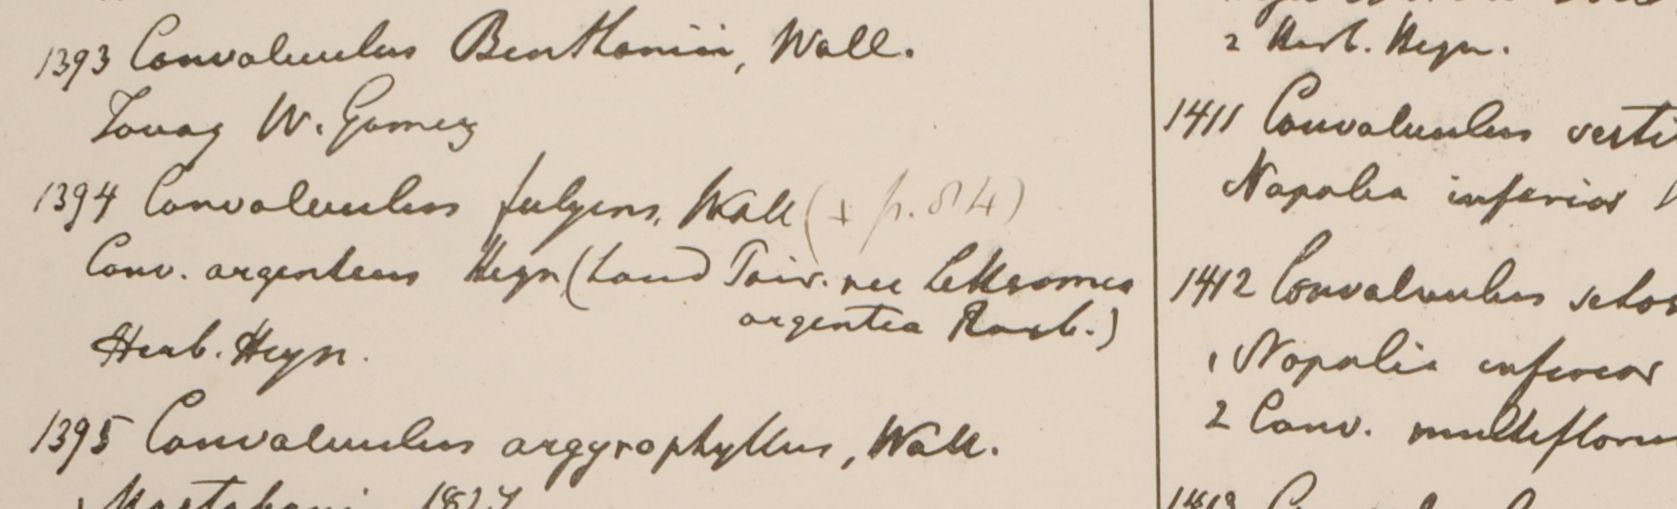 1393 Convolvulus Benthamii, Wall.
Tavoy W. Gomez
1394 Convolvulus fulgens, Wall (+ p. 84)
Conv. argenteus Heyn (haud Poir. nec Lettsomia
argentea Roxb.)
Herb. Heyn.
1395 Convolvulus argyrophyllus, Wall.
1 Martabani 1827
2 Herb. Heyn.
1411 Convolvulus verti
Napalia inferior
1412 Convolvulus setos
1 Napalia inferior
2 Conv. multiflorus
1413